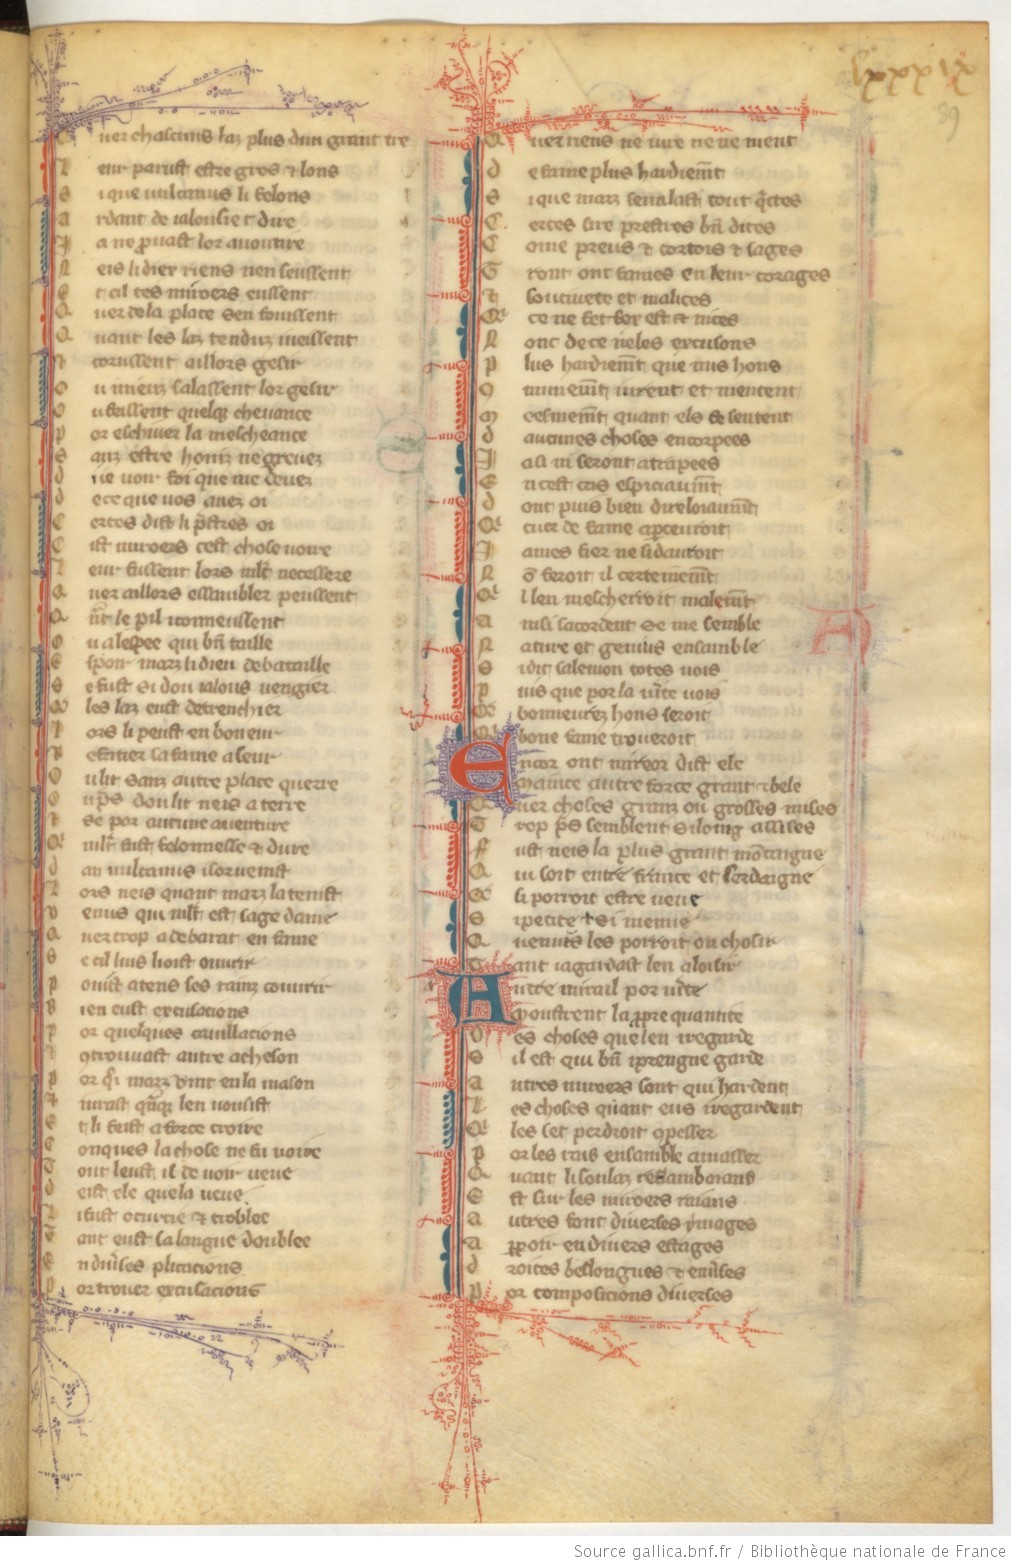 lxxxix
89
Q uer chascuns laz plus dun grant tre
L eur parust estre gros & lons
S i que uulcanus li felons
A rdant de ialousie & dire
J a ne prouast lor auoutire
N eis li diex riens nen seussent
E t cil tes miroers eussent
Q uer de la place sen fouissent
Q uant les laz tenduz ueissent
corussent aillors gesir
O u mieuz salassent lor gesir
O u feissent quelq cheuance
P or eschiuer la mescheance
S anz estre honiz ne greuez
d ie uoir foi que me deuez
d e ce que uos auez oi
C ertes dist li prestres oi
C ist miroers cest chose uoire
L eur fussent lors mlt necessere
Q uer aillors essambler peussent
Q nt le pil i conneussent
O u a lespee qui bn taille
E spoir marz li dieu de bataille
S e fust si dou ialous uengiez
Q les laz eust detrenchiez
L ors li peust en boneur
R efaitier sa fame a seur
O u lit sanz autre place querre
O u pres dou lit neis a terre
E se por aucune auenture
Q mlt fust felonnesse & dure
d an uulcanus i soruenist
L ors neis quant marz la tenist
V enus qui mlt est sage dame
Q uer trop a de barat en fame
S e cil luis lioist ouurir
P ouist a tens ses rainz couurir
B ien eust excusacions
P or quelques cauillacions
9trouuast autre acheson
P or qi marz uint en la mason
J urast qunq len uousist
E t li feist a force croire
C onques la chose ne fu uoire
T out leust il de uoir ueue
d eist ele que la ueue
L i fust ocurcie & troblee
T ant eust sa langue doublee
E n diuses plicacions
P or trouer excusacions
Q uer riens ne iure ne ne ment
d e fame plus hardiement
S i que marz sen alast tout qites
C ertes sire prestres bn dites
C ome preus & cortois & sages
T ront ont fames en leur corages
E soutiuete et malices
Q ce ne set fox est & nices
N onc de ce ne les excusons
P lus hardiemt que nus hons
9 nuneumt iurent et mentent
M eesmemt quant els se sentent
d aucunes choses encorpees
J a si ni seront atrapees
E n cest cas especiaumt
d ont puis bien dire loiaumt
Q cuer de fame aperceuroit
J ames fier ne si dauroit
N o feroit il certenemt
Q l len mescherroit malemt
A insi sacordent se me semble
N ature et genius ensamble
S i dit salemon totes uois
P uis que por la uerte uois
Q boneurez hons seroit
Q bone fame troueroit
E ncor ont mireor dist ele
mainte autre force grant & bele
Q uer choses granz ou grosses mises
T rop pres semblent si loing assises
F ust neis la plus grant montaigne
Q ui soit entre france et sardaigne
Q li porroit estre ueue
S i petite & si menue
Q uennis les porroit on chosir
T ant i agardast len a loisir
A utre mirail por uerte
moustrent la propre quantite
d es choses que len i regarde
S il est qui bn i prengne garde
A utres miroers sont qui hardent
L es choses quant eus i regardent
Q les set perdroit 9passer
P or les rais ensamble amasser
Q uant li solauz resamboians
E st sur les miroers raians
A utres font diuerses ymages
A pparoir en diuers estages
d roites beslongues & enuses
P or composicions diuerses